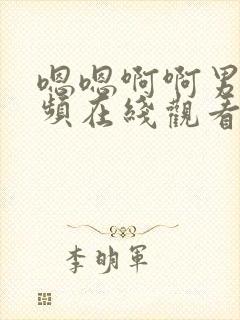 嗯嗯啊啊男
頻在綫觀看
李明軍